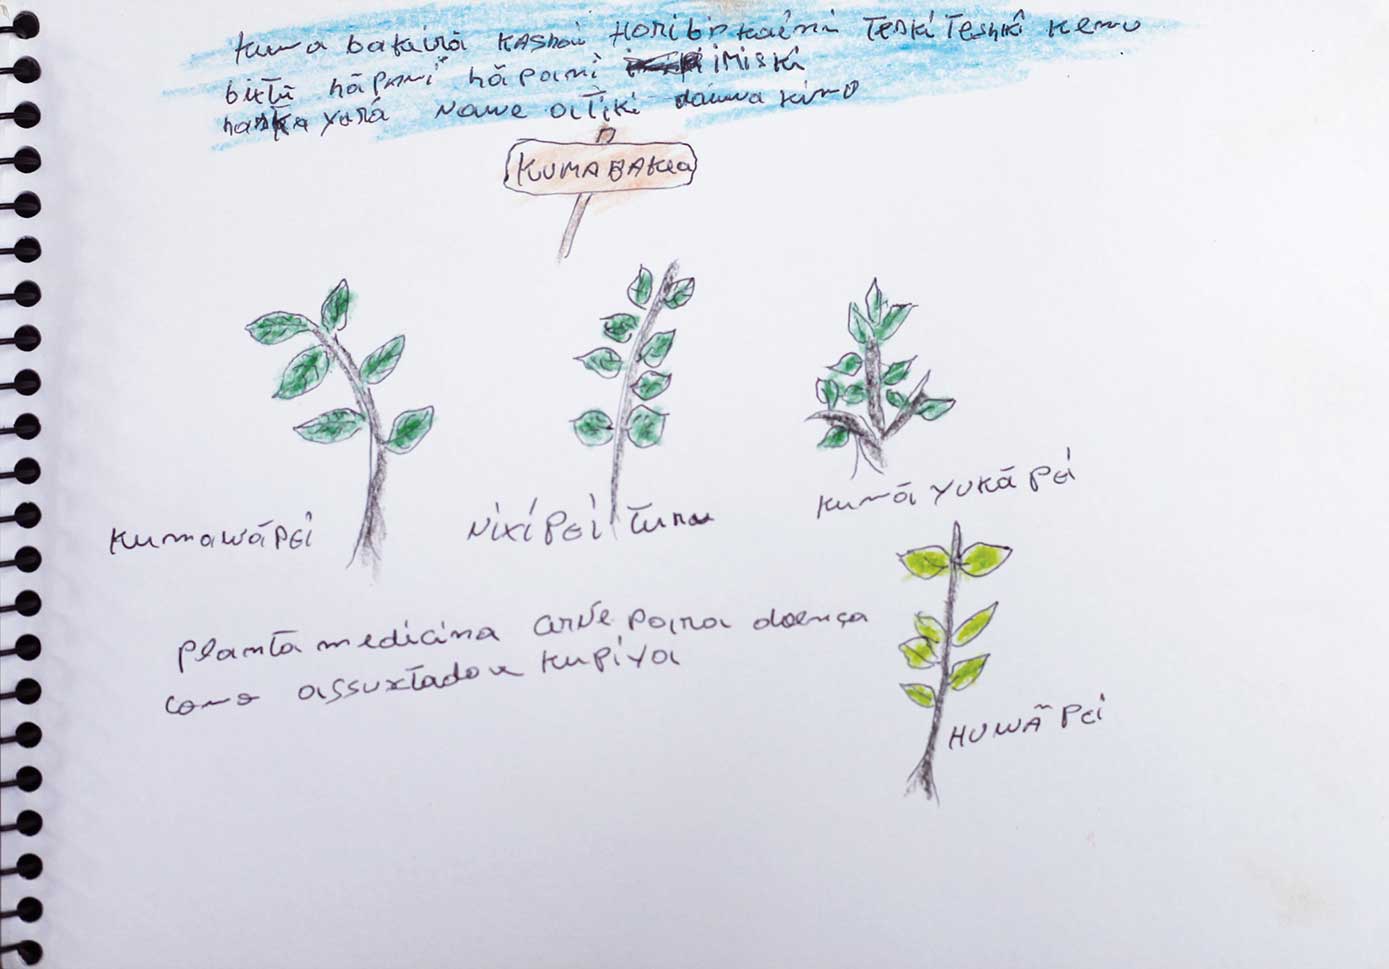 kuma bakirã kashai Horibi kaini Teski Teshki kemu
bixtũ hãpani hãpani imiski
haska yurá Nawe aitiki dauwa kino
KUMABAKea
KUMAWÃPEI
NIXÍPEI Tunu
Kumã YUKÃ PEI
planta medicina cirve paira doença
como assustado e KUPIYA
HUWÃ PEI